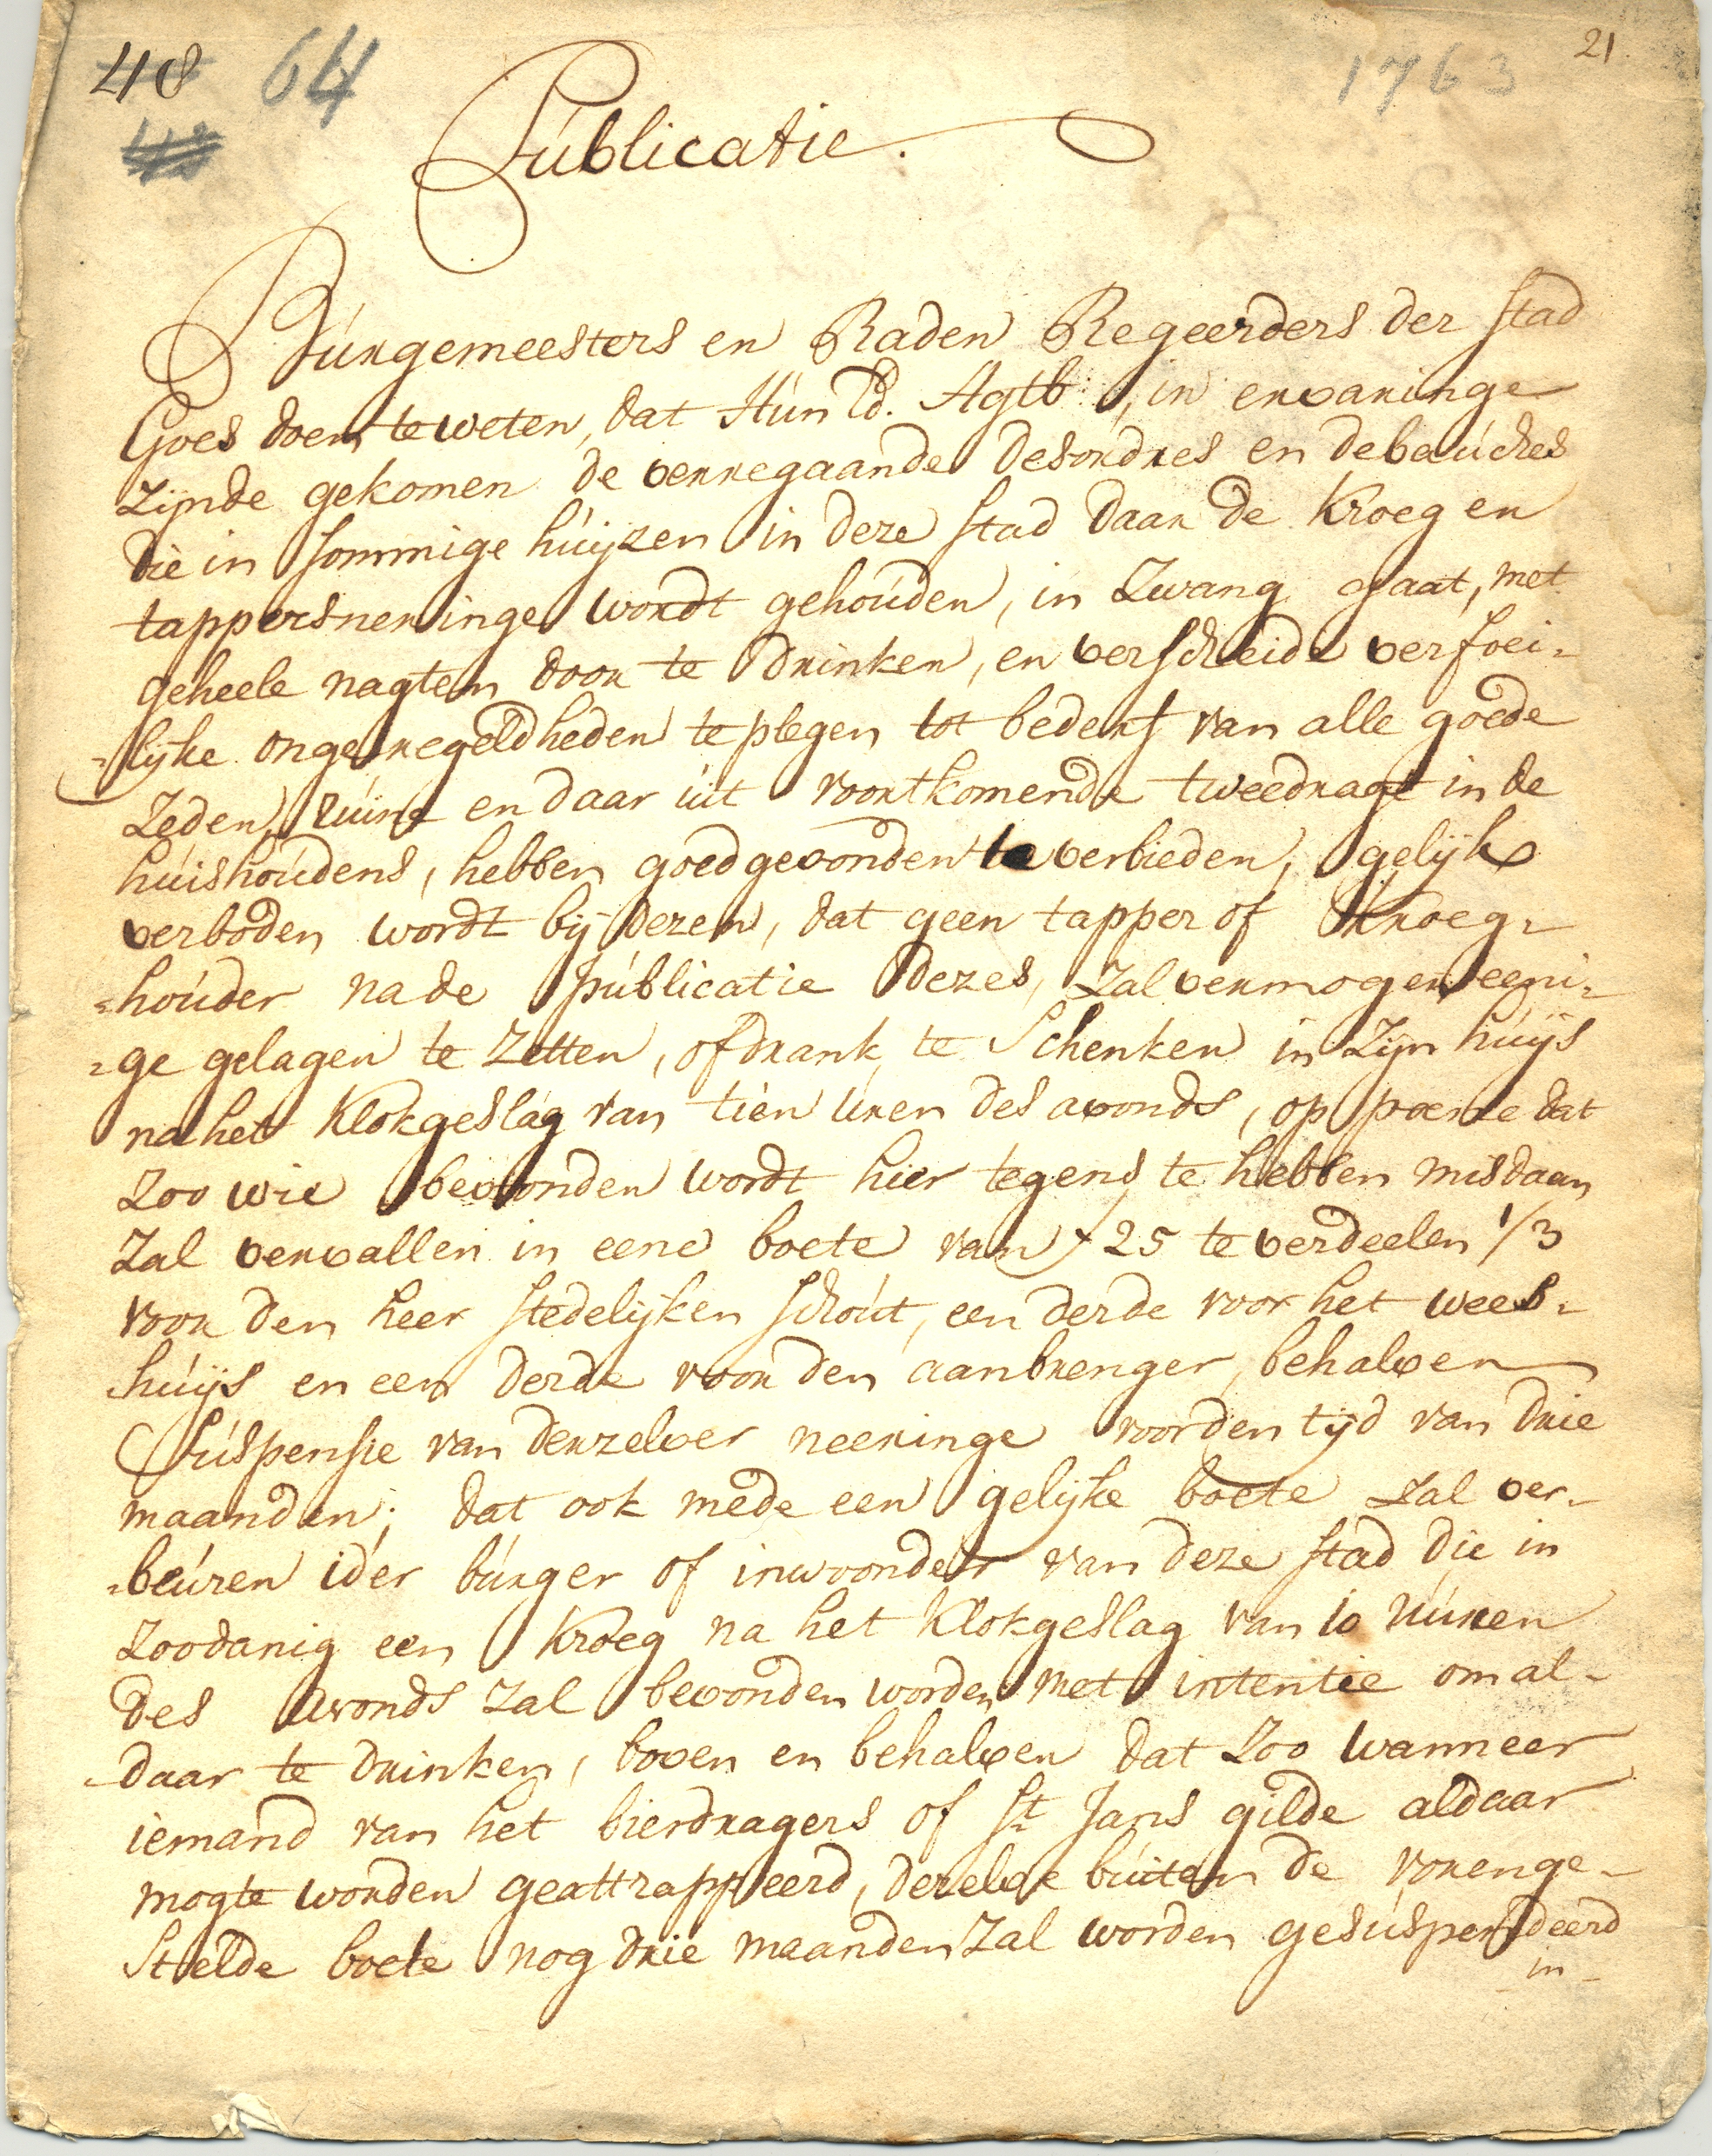 48 64 1763 21.
Publicatie.
Burgemeesters en Raden Regeerders der stad
Goes doen te weten, dat Hun Ed. Agtb:, in ervaringe
zijnde gekomen de verregaande desordres en debauches
die in sommige huijzen in deze stad daar de Kroeg en
tappersneringe wordt gehouden, in Zwang gaat, met
geheele nagten door te drinken, en verscheide verfoei-
-lijke ongeregeldheden te plegen tot bederf van alle goede
Zeden, ruine en daar uit voortkomende tweedragt in de
huishoudens, hebben goedgevonden te verbieden, gelijk
verboden wordt bij dezen, dat geen tapper of Kroeg-
=houder na de publicatie dezes, zal vermogen eeni-
=ge gelagen te Zetten, of drank te Schenken in Zijn huijs
na het Klokgeslag van tien uren des avonds, op poene dat
Zoo wie bevonden wordt hier tegens te hebben misdaan
Zal vervallen in eene boete van ƒ 25 te verdeelen 1/3
voor den heer stedelijken schout, een derde voor het wees-
huijs en een derde voor den aanbrenger, behalven
Suspensie van derzelver neeringe voor den tijd van drie
maanden; dat ook mede een gelijke boete zal ver-
-beuren ider burger of inwoonder van deze stad die in
Zoodanig een Kroeg na het Klokgeslag van 10 uuren
des avonds zal bevonden worden met intentie om al-
-daar te drinken, boven en behalven dat Zoo wanneer
iemand van het bierdragers of St Jans gilde aldaar
mogte worden geattrappeerd, dezelve buiten de vorenge-
Stelde boete nog drie maanden Zal worden gesuspendeerd
in-